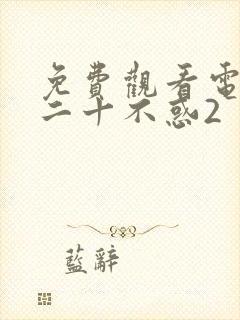 免費觀看電
二十不惑2
藍辭